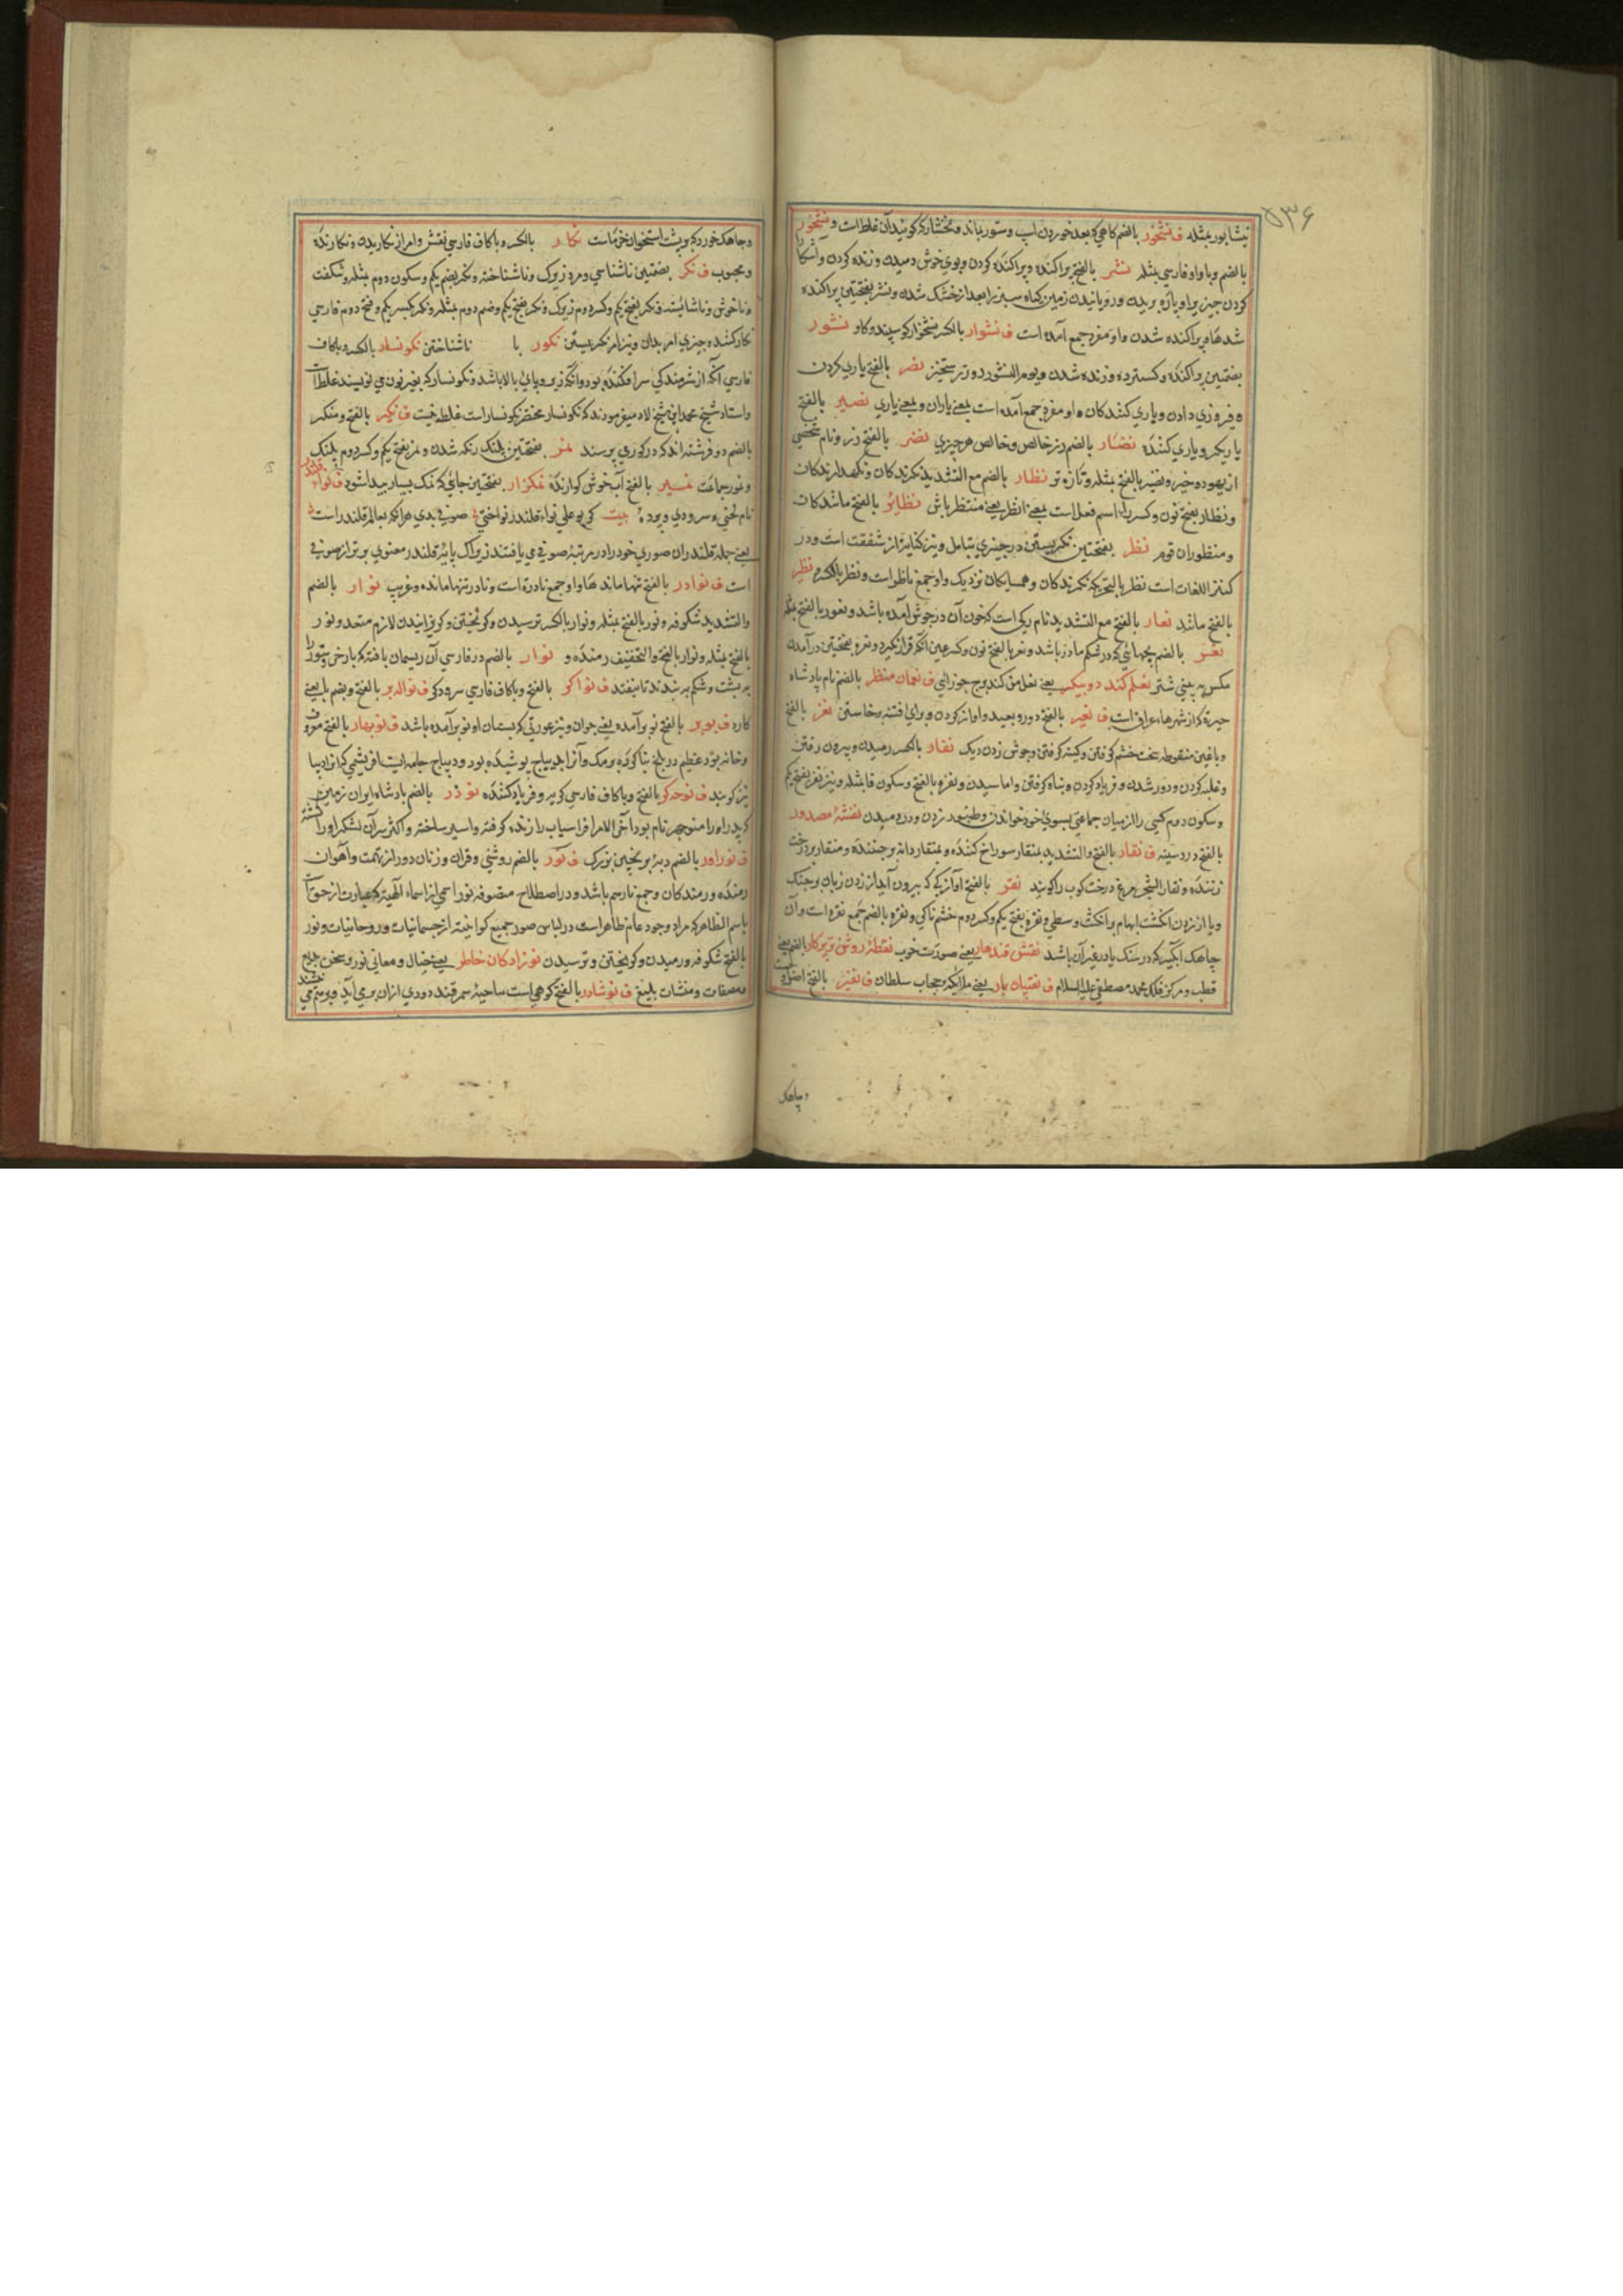 ۵۳۶
نیشابور بمثله ف نشخور بالضم کاهی که بعد خوردن اسپ و ستور باند و نخشار که کویند آن غلط است و نشخور
بالضم و با واو فارسی بمثله نشر بالفتح پراکنده و پراکنده کردن و بوی خوش دمیدن و زنده کردن و آشکارا
کردن چیزیرا و پاره بریدن و رویانیدن زمین کیاه سبز را بعد از خشک شدن و نشر بفتحتین پراکنده
شدها و پراکنده شدن واو مفرد جمع آمده است ف نشوار بالکسر نشخوار کوسپند و کاو نشور
بضمتین پراکنده و کسترده و زنده شدن و یوم النشور روز رستخیز نصر بالفتح یاری کردن
و فیروزی دادن و یاری کنندکان واو مفرد جمع آمده است بمعنی یاران و بمعنی یاری نصیر بالفتح
یاریکر و یاری کننده نضار بالضم زر خالص و خالص هر چیزی نضر بالفتح زر و نام شخصی
از یهود و خیبر و نضیر بالفتح بمثله و تازه تر نظار بالضم مع التشدید نکرندکان و نکهدارندکان
و نظار بفتح نون و کسر را اسم فعل است بمعنی انظر یعنی منتظر باش نظائر بالفتح مانندکان
و منظوران قوم نظر بفتحتین نکریستن در چیزی بتامل و نیز کنایه از شفقت است و در
کنز اللغات است نظر بالتحریک نکرندکان و همسایکان نزدیک واو جمع ناظر است و نظر بالکسر و نظیر
بالفتح مانند نعار بالفتح مع التشدید نام رکی است که خون آن در جوش آمده باشد و نعور بالفتح بمثله
نعر بالضم بچهائی که در شکم مادر باشد و نعر بالفتح نون و کسر عین آنکه قرار نکیرد و نعر بفتحتین درآمدن
مکس به بینی شتر نعلم کند دو پیکر یعنی نعل من کند برج جوزا ف نعمان منظر بالضم نام پادشاه
حیره که از شهرهای عراق است ف نعیر بالفتح دور و بعید و آواز کردن و برای فتنه برخاستن نغر بالفتح
و با غین منقوطه سخت خشم کرفتن و کینه کرفتن و جوش زدن دیک نفار بالکسر رمیدن و بیرون رفتن
و غلبه کردن و دور شدن و فریاد کردن و پناه کرفتن و اماسیدن و نفره بالفتح و سکون فا بمثله و نیز نفر بفتح یکم
و سکون دوم کسی را از میان جماعتی بسوی خود خواندن و طنبور زدن و در دمیدن نفثهٔ مصدور
بالفتح درد سینه ف نقار بالفتح و التشدید بمنقار سوراخ کننده و بمنقار دانه برچیننده و منقار بر درخت
زننده و نقار الشجر مرغ درخت کوب را کویند نقر بالفتح آوازی که بیرون آید از زدن زبان بر چنک
و یا از زدن انکشت ابهام بر انکشت وسطی و نقره بفتح یکم و کسر دوم خشم ناکی و نقره بالضم جمع نقره است و آن
چاهک آبکیر که در سنک یا در غیر آن باشد نقش قندهار یعنی صورت خوب نقطهٔ روشن تر پرکار بالضم یعنی
قطب و مرکز فلک محمد مصطفی علیه السلام ف نقیبان بار یعنی ملائکه و حجاب سلطان ف نقیر بالفتح اصل و نسب
و چاهک
و چاهک خورد که بر پشت استخوان خرماست نکار بالکسر و با کاف فارسی نقش و امر از نکاریدن و نکارنده
و محبوب ف نکر بضمتین ناشناسی و مرد زیرک و ناشناخته و نکر بضم یکم و سکون دوم بمثله و شکفت
و ناخوش و ناشایسته و نکر بفتح یکم و کسر دوم زیرک و نکر بفتح یکم و ضم دوم بمثله و نکر بکسر یکم و فتح دوم فارسی
کار کننده چیزی امر بدان و نیز امر نکریستن نکور با ناشناختن نکونسار بالکسر و با کاف
فارسی آنکه از شرمندکی سر افکنده بود و آنکه زیر وی پای بالا باشد و نکونسار که بغیر نون می نویسند غلط است
و استاد شیخ محمد ابن شیخ لاد میفرمودند که نکوسار مختصر نکونسار است غلط نیست ف نکیر بالفتح و منکر
بالضم دو فرشته اند که در کور می پرسند نمر بفتحتین پلنک رنکه شدن و نمر بفتح یکم و کسر دوم پلنک
و نور جماعت نمیر بالفتح آب خوش کوارنده نمکزار بفتحتین جائی که نمک بسیار پیدا شود ف نواء قلندر
نام لحنی و سرودی و پرده بیت کر بو علی نواء قلندر نواختی صوفی بدی هر آنکه بعالم قلندر است
یعنی جمله قلندران صوری خود را در مرتبهٔ صوفی می یافتند زیراک پایهٔ قلندر معنوی برتر از صوفی
است ف نوادر بالفتح تنها ماندها واو جمع نادره است و نادر تنها مانده و غریب نوار بالضم
و التشدید شکوفه و نور بالفتح بمثله و نوار بالکسر ترسیدن و کریختن و کریزانیدن لازم متعد و نور
بالفتح بمثله و نوار بالفتح و التخفیف رمنده و نوار بالضم در فارسی آن ریسمان بافته که بار خر و ستور را
به پشت و شکم به بندند تا نیفتد ف نواکر بالفتح و با کاف فارسی سرود کو ف نوالہ بر بالفتح و بضم با یعنی
کارد ف نوبر بالفتح نو برآمده یعنی جوان و نیز عورتی که پستان او نو برآمده باشد ف نوبهار بالفتح معروف
و خانه بود عظیم در بلخ بنا کرده برمک و آنرا بدیباج پوشیده بود و دیباج جامه ایست ابریشمی که آنرا دیبا
نیز کویند ف نوحه کر بالفتح و با کاف فارسی کریه و فریاد کننده نوذر بالضم پادشاه ایران زمین
که پدر او را منوچهر نام بود آخر الامر افراسیاب را زنده کرفته و اسیر ساخته و اکثر سران لشکر او را کشته
ف نوراور بالضم دبهٔ برنجین بزرک ف نور بالضم روشنی و قرآن و زنان دور از تهمت و آهوان
رمنده و رمندکان و جمع نار هم باشد و در اصطلاح متصوفه نور اسمی از اسماء الهیه که عبارت از حق است
باسم الظاهر که مراد وجود عام ظاهر است در لباس صور جمیع کواینه از جسمانیات و روحانیات و نور
بالفتح شکوفه و رمیدن و کریختن و ترسیدن نوزادکان خاطر یعنی خیال و معانی نو و سخن جدید
و مصنفات و منشات بلیغ ف نوشادر بالفتح کوهی است بناحیهٔ سمرقند دودی ازان بر می آید و به ستم می